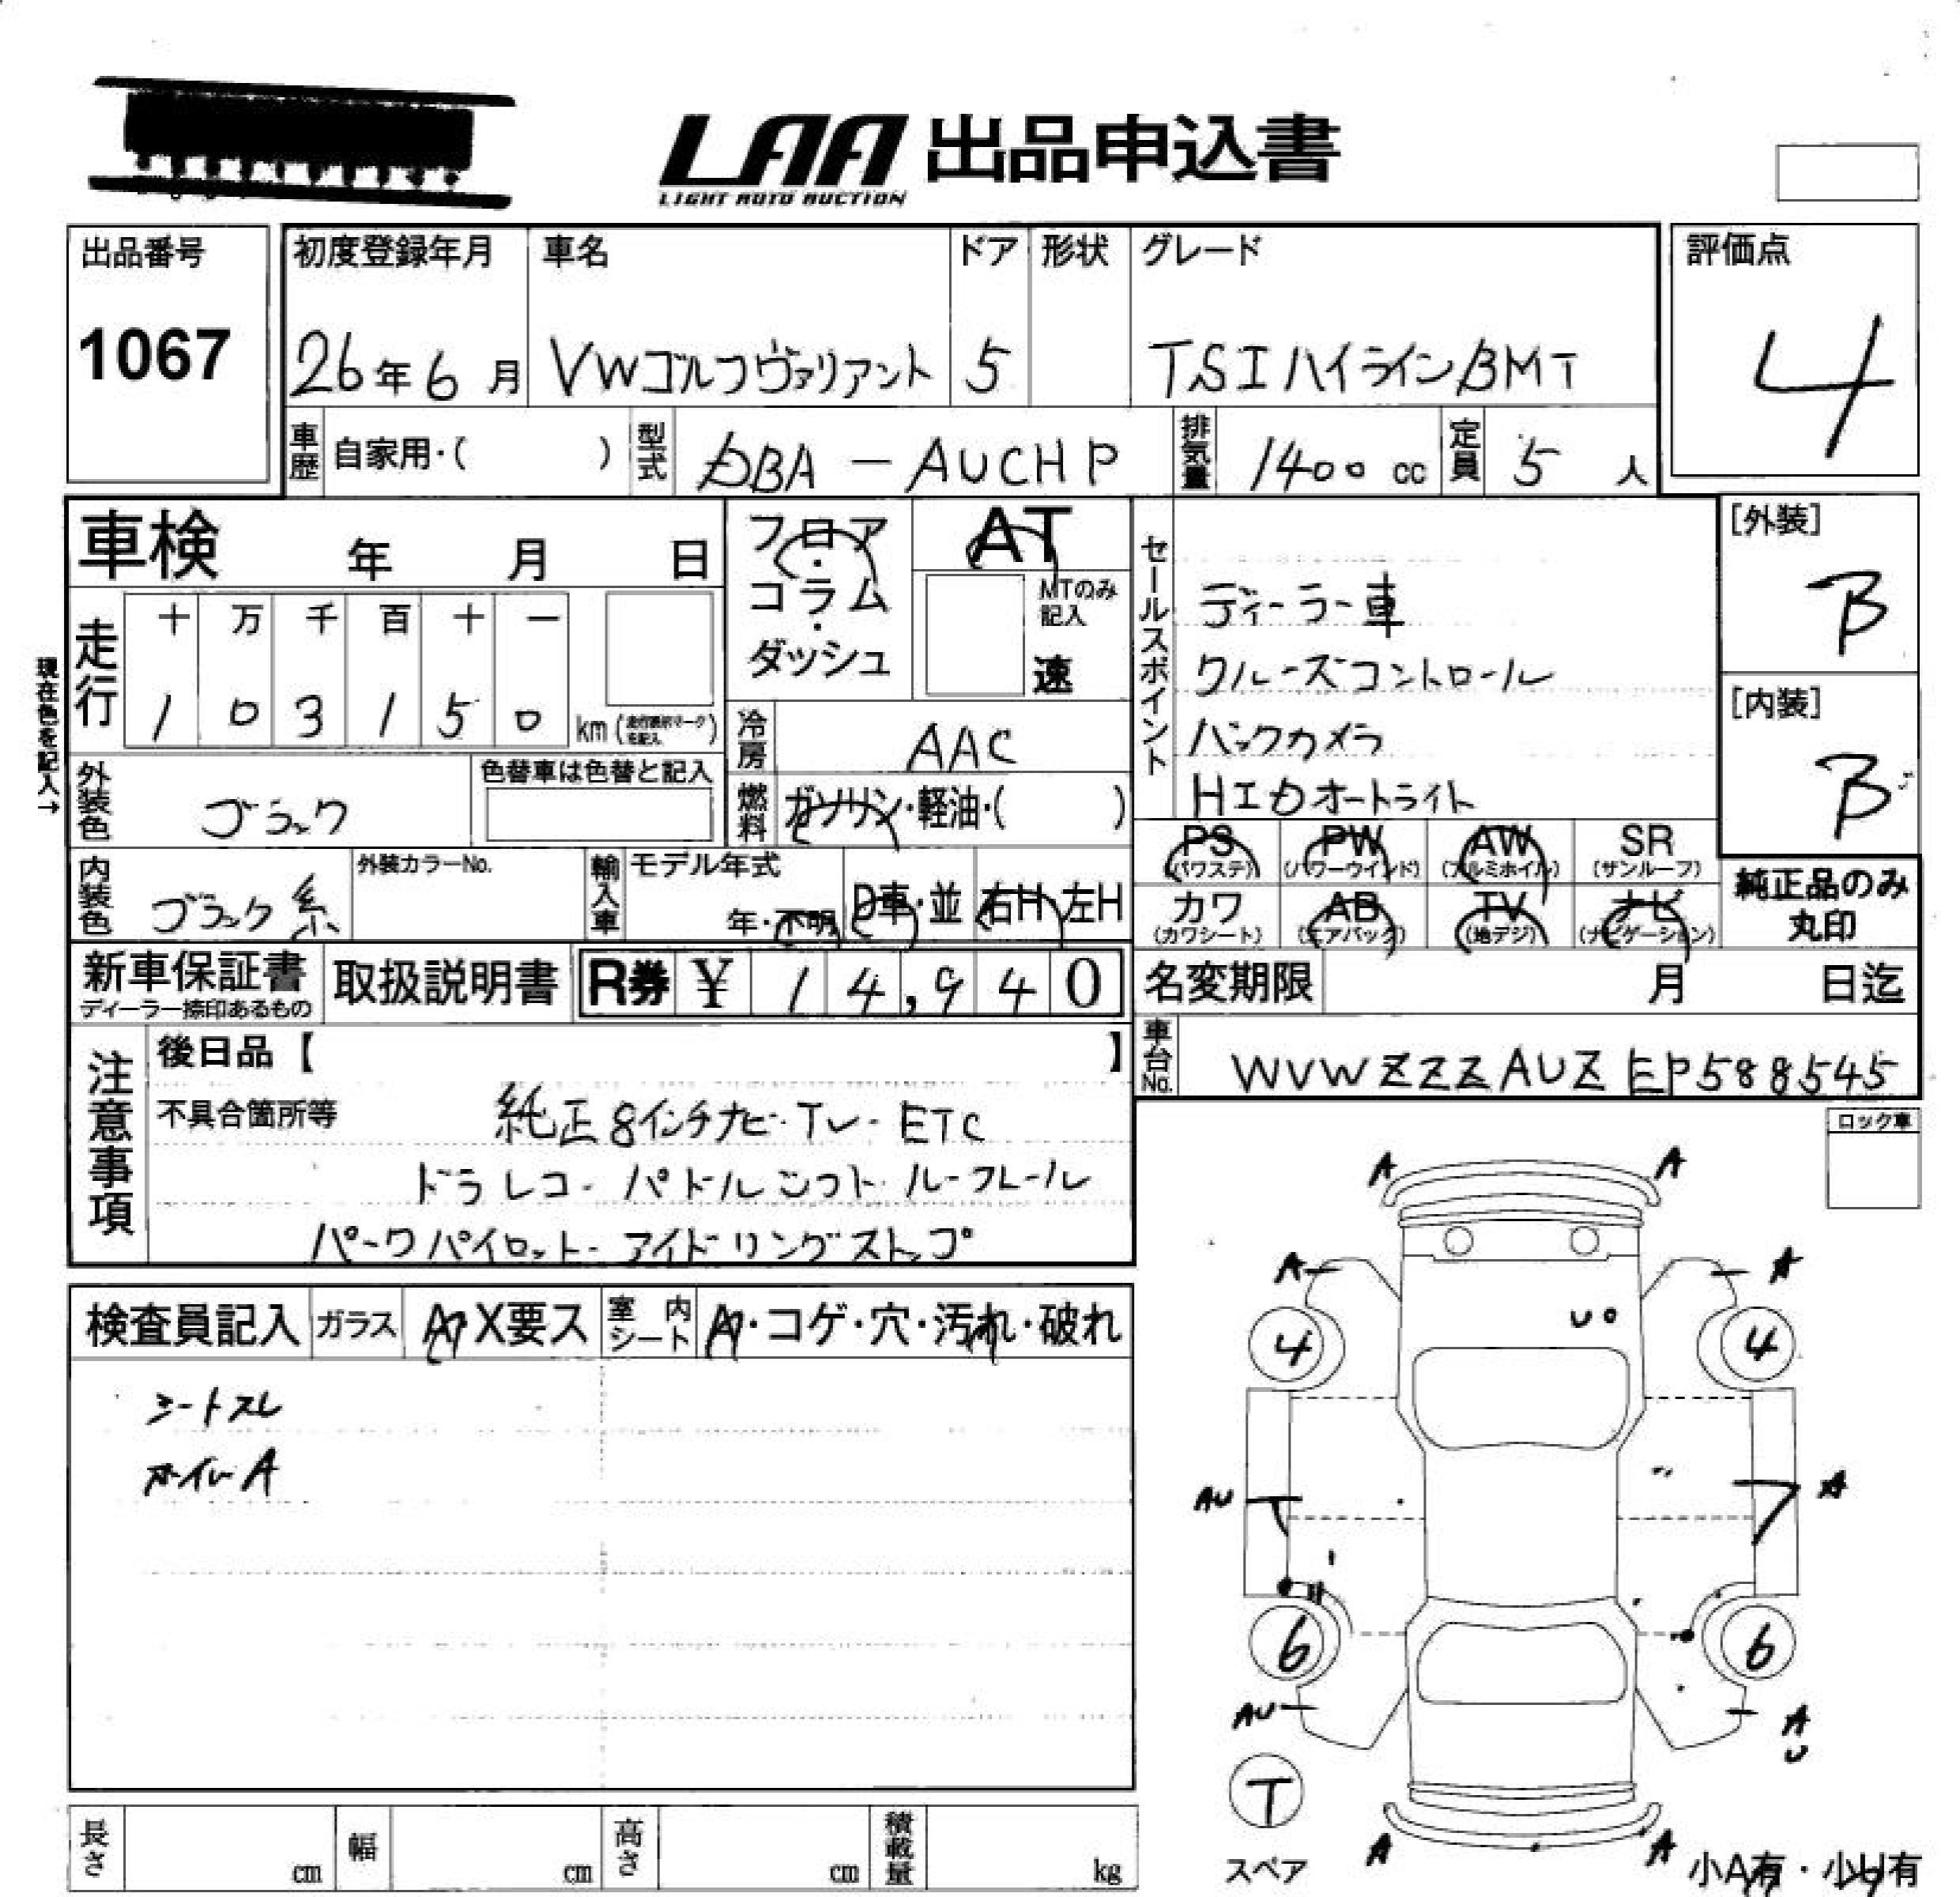 LAA 出品申込書
LIGHT AUTO AUCTION
出品番号
1067
初度登録年月
26年6月
車名
VWゴルフヴァリアント
ドア
5
形状
グレード
TSIハイラインBMT
評価点
4
車歴 自家用・( )
型式 DBA - AUCHP
排気量 1400 cc
定員 5 人
車検 年 月 日
フロア・コラム・ダッシュ
AT
MTのみ記入
速
セールスポイント
ディーラー車
クルーズコントロール
バックカメラ
HIDオートライト
[外装]
B
[内装]
B
現在色を記入→
走行
十 万 千 百 十 一
1 0 3 1 5 0 km
冷房 AAC
外装色 ブラック
色替車は色替と記入
燃料 ガソリン・軽油・( )
PS (パワステ)
PW (パワーウインド)
AW (アルミホイル)
SR (サンルーフ)
カワ (カワシート)
AB (エアバック)
TV (地デジ)
ナビ (ナビゲーション)
純正品のみ
丸印
内装色 ブラック系
外装カラーNo.
輸入車 モデル年式
年・不明
D車・並
右H 左H
新車保証書
ディーラー捺印あるもの
取扱説明書
R券 ¥ 14,940
名変期限 月 日迄
車台No. WVWZZZAUZEP588545
注意事項
後日品【 】
不具合箇所等 純正8インチナビ・TV・ETC
ドラレコ・パドルシフト・ルーフレール
パークパイロット・アイドリングストップ
ロック車
検査員記入
ガラス A X要ス
室内シート A・コゲ・穴・汚れ・破れ
シートスレ
ホイルA
A A
A A
U
4 4
AU A
6 6
AU AU
T
スペア
A A
小A有・小U有
長さ cm
幅 cm
高さ cm
積載量 kg